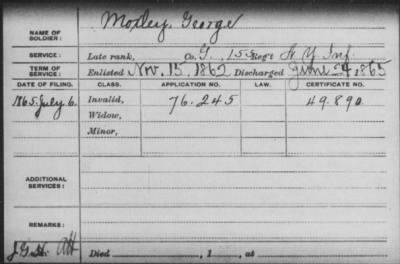 NAME OF SOLDIER: Moxley, George
SERVICE: Late rank, Co. G, 155 Reg't N. Y. Inf.
TERM OF SERVICE: Enlisted Nov. 15, 1862 Discharged June 24, 1865
DATE OF FILING. CLASS. APPLICATION NO. LAW. CERTIFICATE NO.
1865. July 6. Invalid, 76.245 49.890
Widow,
Minor,
ADDITIONAL SERVICES:
REMARKS:
Died , 1 , at